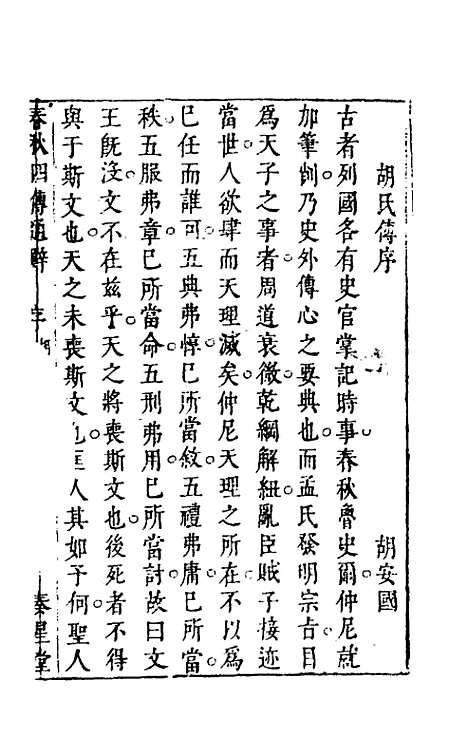 胡氏傳序　胡安國
古者列國各有史官掌記時事春秋魯史爾仲尼就
加筆削乃史外傳心之要典也而孟氏發明宗旨目
爲天子之事者周道衰微乾綱解紐亂臣賊子接迹
當世人欲肆而天理滅矣仲尼天理之所在不以爲
已任而誰可五典弗惇已所當敘五禮弗庸已所當
秩五服弗章已所當命五刑弗用已所當討故曰文
王旣没文不在兹乎天之將喪斯文也後死者不得
與于斯文也天之未喪斯文也匡人其如予何聖人
春秋四傳 秦星堂